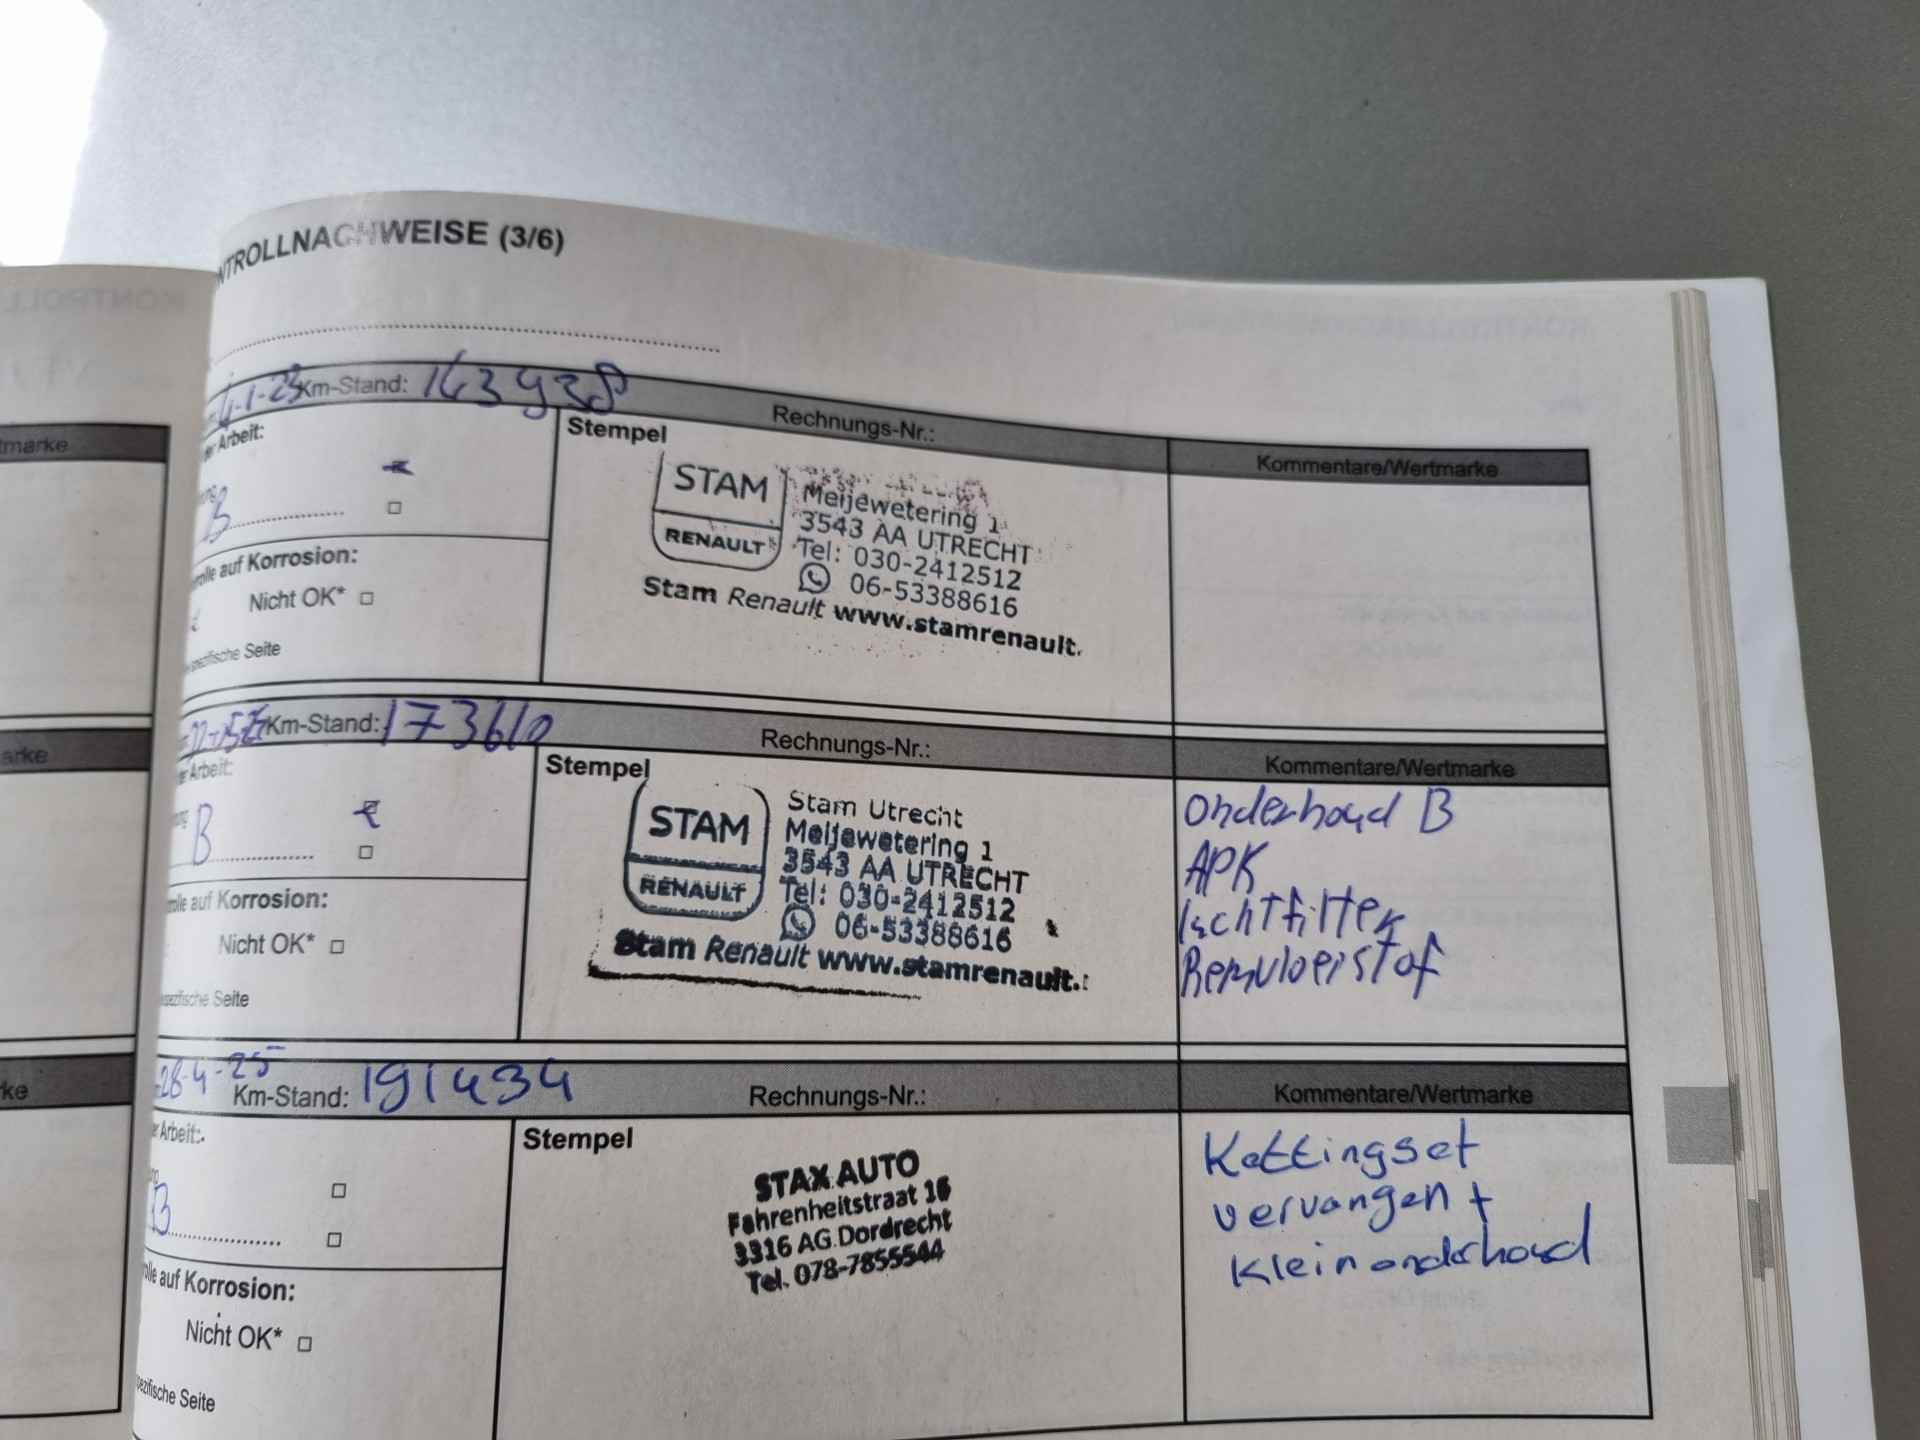 NTROLLNACHWEISE (3/6)
4-1-23 Km-Stand: 143938
Rechnungs-Nr.:
Kommentare/Wertmarke
er Arbeit:
B
Stempel
STAM
RENAULT
Meijewetering 1
3543 AA UTRECHT
Tel: 030-2412512
06-53388616
Stam Renault www.stamrenault.
rolle auf Korrosion:
Nicht OK*
spezifische Seite
Km-Stand: 173610
Rechnungs-Nr.:
Kommentare/Wertmarke
er Arbeit:
B
Stempel
STAM
RENAULT
Stam Utrecht
Meijewetering 1
3543 AA UTRECHT
Tel: 030-2412512
06-53388616
Stam Renault www.stamrenault.
Onderhoud B
APK
luchtfilter
Remvloeistof
rolle auf Korrosion:
Nicht OK*
spezifische Seite
28-4-25
Km-Stand: 191434
Rechnungs-Nr.:
Kommentare/Wertmarke
er Arbeit:
B
Stempel
STAX AUTO
Fahrenheitstraat 16
3316 AG Dordrecht
Tel. 078-7855544
Kettingset
vervangen +
Klein onderhoud
rolle auf Korrosion:
Nicht OK*
spezifische Seite
tmarke
arke
ke